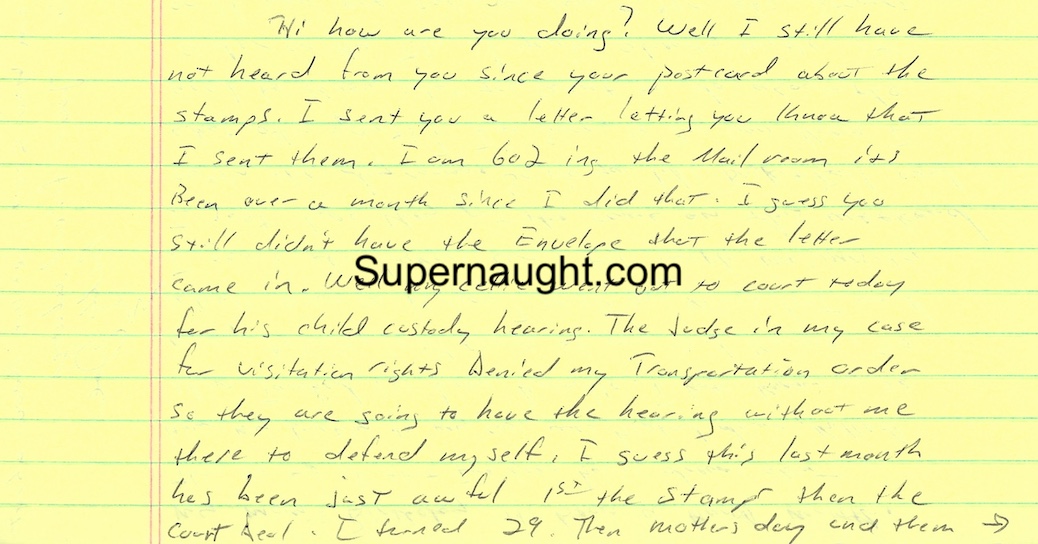 Hi how are you doing? Well I still have
not heard from you since your postcard about the
stamps. I sent you a letter letting you know that
I sent them. I am 602 ing the Mail room its
Been over a month since I did that. I guess you
still didn't have the Envelope that the letter
came in. Well my cellie went out to court today
Supernaught.com
for his child custody hearing. The Judge in my case
for visitation rights Denied my Transportation order
so they are going to have the hearing without me
there to defend myself. I guess this last month
has been just awful 1ST the stamps then the
court deal. I turned 29. Then mothers day and them →